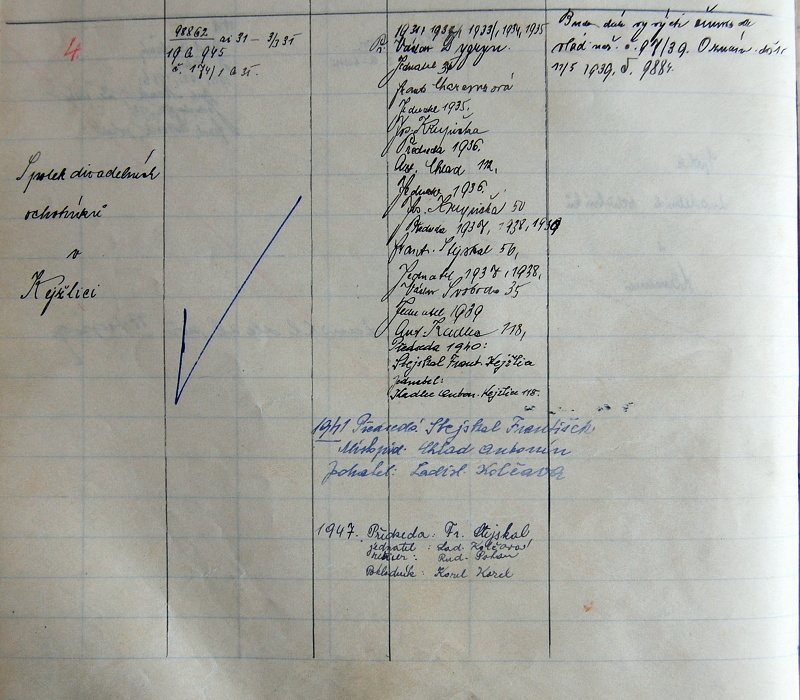 4.
Spolek divadelních
ochotníků
v
Kejžlici
98862 ai 31 – 3/3 31
19 a 945
č. 174/1 a 35.
1931, 1932, 1933, 1934, 1935
Př. Václav
Jednatel 34
Frant.
Jednatel 1935,
Jos. Krupička
Předseda 1936.
Ant. Chlad 112,
Jednatel 1936.
Jos. Krupička 50
Předseda 1937, 1938, 1939
Frant. Stejskal 56,
Jednatel 1937, 1938,
Václav Svoboda 35
Jednatel 1939
Ant. Kadlec 118,
Předseda 1940:
Stejskal Frant. Kejžlice
Jednatel:
Kadlec Anton. Kejžlice 118.
1941 Předseda: Stejskal František
Místopřed. Chlad Antonín
Jednatel: Ladisl. Kolčava
1947. Předseda: Fr. Stejskal
jednatel: Lad. Kolčava
Rud.
Pokladník: Karel Karel
vlád. nař. č. 97/39.
11/5 1939, č. 9884.